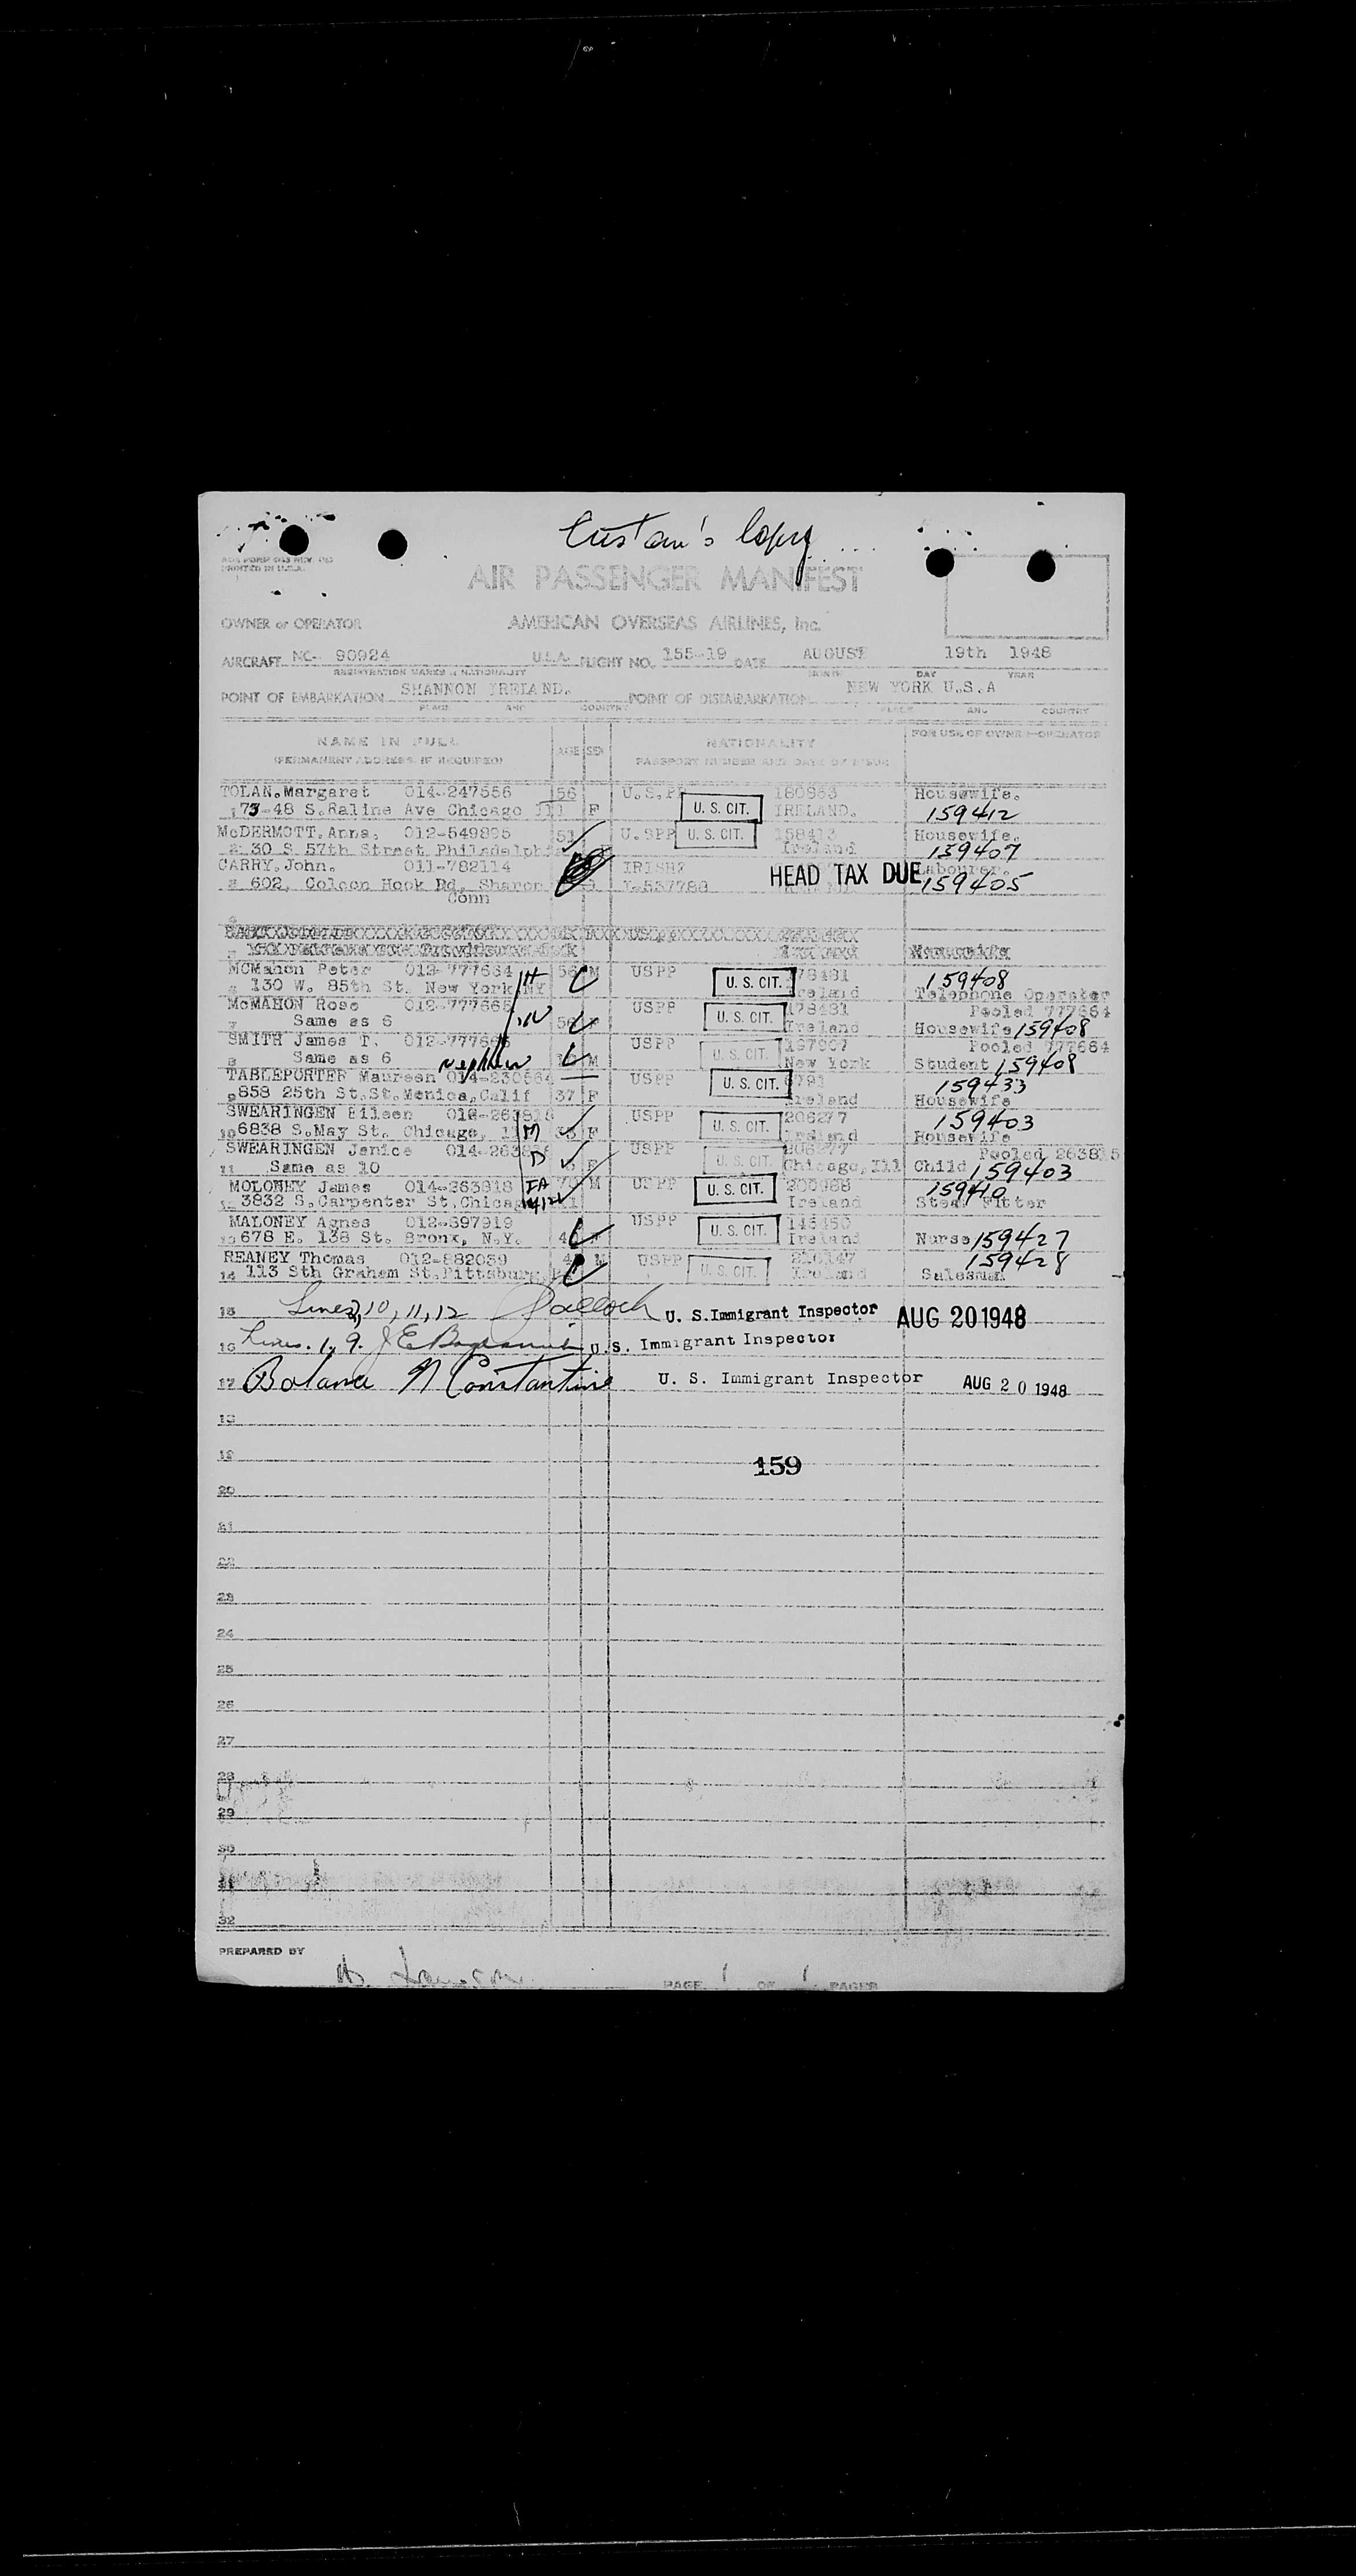 Custom's Copy
PRINTED IN U.S.A.
AIR PASSENGER MANIFEST
OWNER or OPERATOR AMERICAN OVERSEAS AIRLINES, Inc.
AIRCRAFT NC- 90924 U.S.A. FLIGHT NO. 155-19 DATE AUGUST 19th 1948
REGISTRATION MARKS & NATIONALITY MONTH DAY YEAR
POINT OF EMBARKATION SHANNON IRELAND. POINT OF DISEMBARKATION NEW YORK U.S.A
PLACE AND COUNTRY PLACE AND COUNTRY
NAME IN FULL AGE SEX NATIONALITY FOR USE OF OWNER-OPERATOR
(PERMANENT ADDRESS IF REQUIRED) PASSPORT NUMBER AND DATE OF ISSUE
TOLAN.Margaret 014-247556 56 U.S.PP 180963 Housewife.
1 73-48 S.Raline Ave Chicago Ill F U. S. CIT. IRELAND. 159412
McDERMOTT.Anna. 012-549895 51 U.SPP U. S. CIT. 158413 Housewife.
2 30 S 57th Street Philadelph Ireland 159407
CARRY.John. 011-782114 IRISH HEAD TAX DUE Labourer.
3 602, Coleon Hook Rd, Sharon 159405
Conn
McMahon Peter 012-777664 H 56 M USPP U. S. CIT. 178481 159408
130 W. 85th St. New York NY Ireland Telephone Operator
McMAHON Rose 012-777665 W USPP U. S. CIT. 178481 Pooled 777664
7 Same as 6 Ireland Housewife 159408
SMITH James T. 012-777666 USPP U. S. CIT. Pooled 777664
8 Same as 6 Nephew M New York Student 159408
TABLEPORTER Maureen 014-230564 USPP U. S. CIT. 159433
9 858 25th St.St.Monica,Calif 37 F Ireland Housewife
SWEARINGEN Eileen USPP U. S. CIT. 206277 159403
10 6838 S.May St. Chicago, M F Ireland Housewife
SWEARINGEN Janice D USPP U. S. CIT. 206277 Pooled 263815
11 Same as 10 F Chicago,Ill Child 159403
MOLONEY James 014-263818 70 M USPP U. S. CIT. 159410
12 3832 S.Carpenter St.Chicago Ireland Steam Fitter
MALONEY Agnes 012-897919 USPP U. S. CIT. 146450
13 678 E. 138 St. Bronx, N.Y. Ireland Nurse 159427
REANEY Thomas 012-882039 M USPP U. S. CIT. 159428
14 113 Sth Graham St.Pittsburg Ireland Salesman
15 Lines 2, 10, 11, 12 U. S. Immigrant Inspector AUG 20 1948
16 Lines. 1, 9. U. S. Immigrant Inspector
17 Constantine U. S. Immigrant Inspector AUG 20 1948
18
19
159
20
21
22
23
24
25
26
27
28
29
30
31
32
PREPARED BY
PAGE 1 OF 1 PAGES